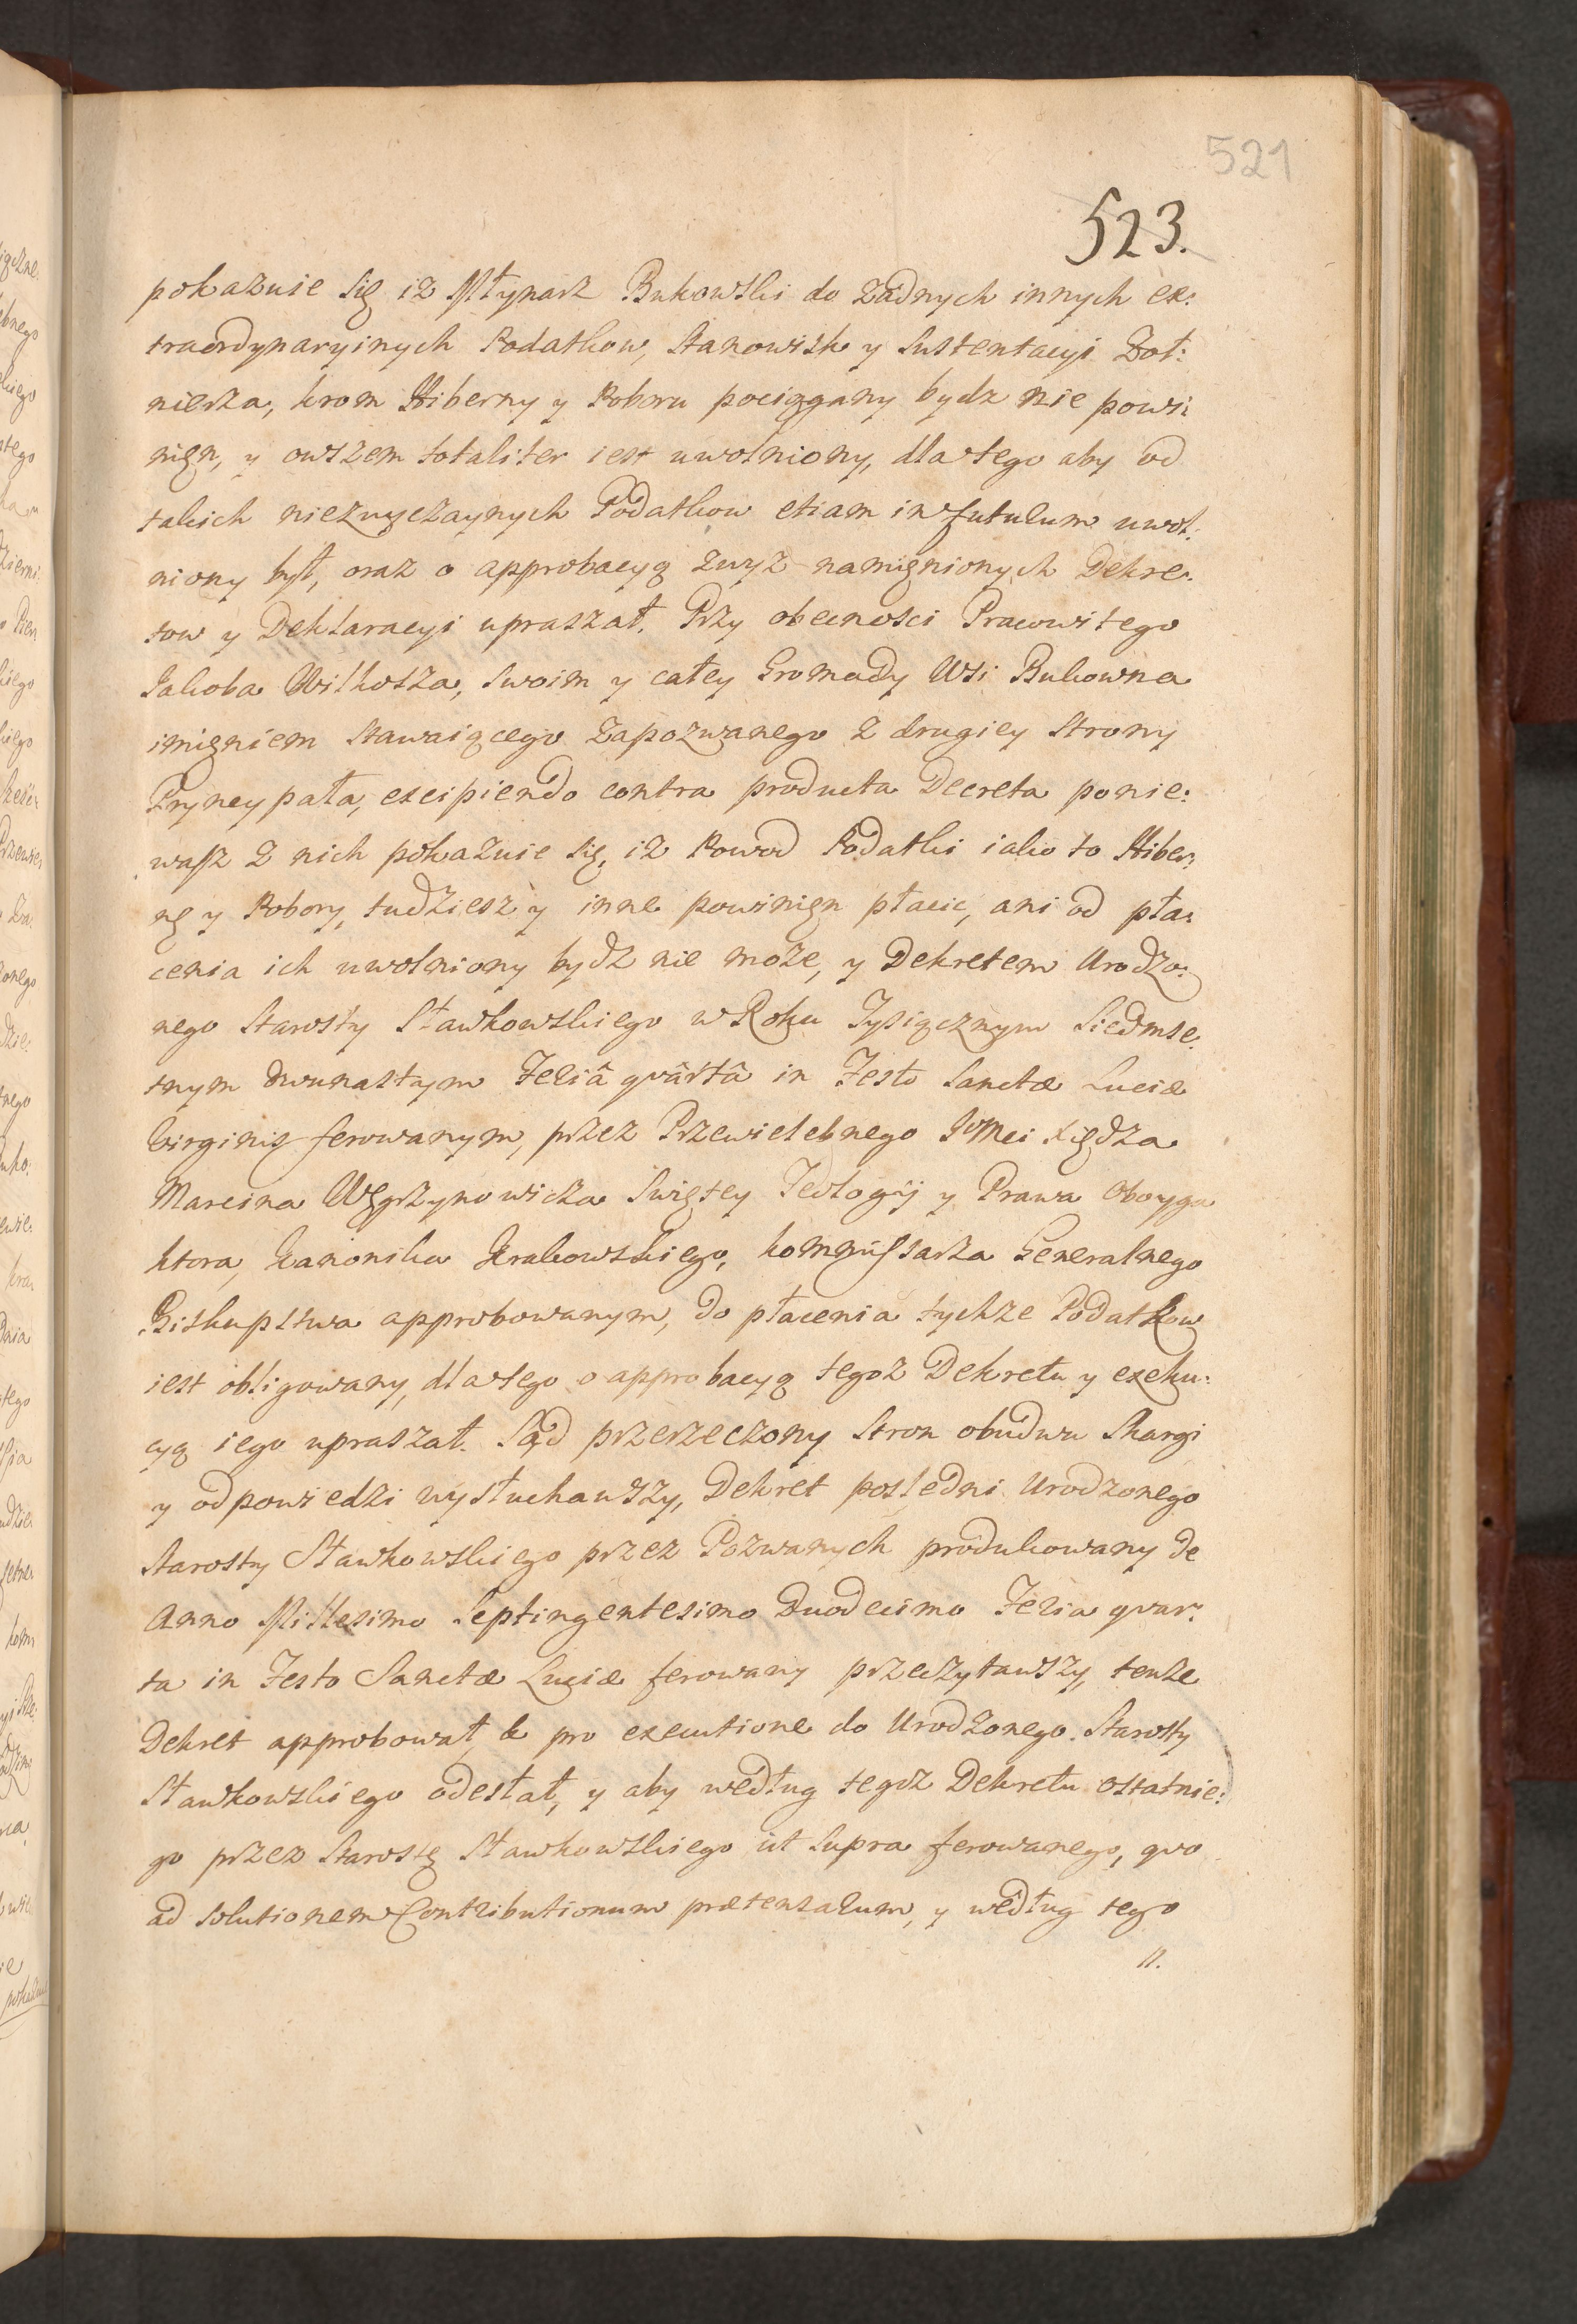 521
523.
pokazuie się iz Młynarz Bukowski do zadnych innych ex:
traordynaryinych Podatkow, Stanowisk y Sustentacyi Zoł:
nierza, krom Hiberny y Poboru pociągany bydz nie powi:
nięn, y owszem totaliter iest uwolniony, dla tego aby od
takich niezwyczaynych Podatkow etiam in futurum uwol:
niony był, oraz o approbacyą zwyz namięnionych Dekre:
tow y Deklaracyi upraszał. Przy obecnosci Pracowitego
Jakoba Wilkosza, swoim y całey Gromady Wsi Bukowna
imięniem stawaiącego Zapozwanego z drugiey Strony
Pryncypała, excipiendo contra producta Decreta ponie:
wasz z nich pokazuie się, iz Powod Podatki iako to Hiber:
nę y Pobory, tudziesz y inne powinięn płacic, ani od pła:
cenia ich uwolniony bydz nie moze, y Dekretem Urodzo:
nego Starosty Sławkowskiego w Roku Tysiącznym Siedmse:
tnym dwunastym Feriâ qvartâ in Festo Sanctæ Luciæ
Virginis ferowanym, przez Przewielebnego JoMci Xiędza
Marcina Węgrzynowicza Swiętey Teologij y Prawa Oboyga
ktora, Kanonika Krakowskiego, kommissarza Generalnego
Biskupstwa approbowanym, do płacenia tychze Podatkow
iest obligowany, dla tego o approbacyą tegoz Dekretu y exeku:
cyą iego upraszał. Sąd przerzeczony Stron obudwu Skargi
y odpowiedzi wysłuchawszy, Dekret posledni Urodzonego
Starosty Sławkowskiego przez Pozwanych produkowany de
Anno Millesimo Septingentesimo Duodecimo Feria qvar:
ta in Festo Sanctæ Luciæ ferowany przeczytawszy, tenze
Dekret approbował, & pro executione do Urodzonego Starosty
Sławkowskiego odesłał, y aby według tegoz Dekretu ostatnie:
go przez Starostę Sławkowskiego ut supra ferowanego, qvo
ad solutionem Contributionum prætensarum, y według tego
//.